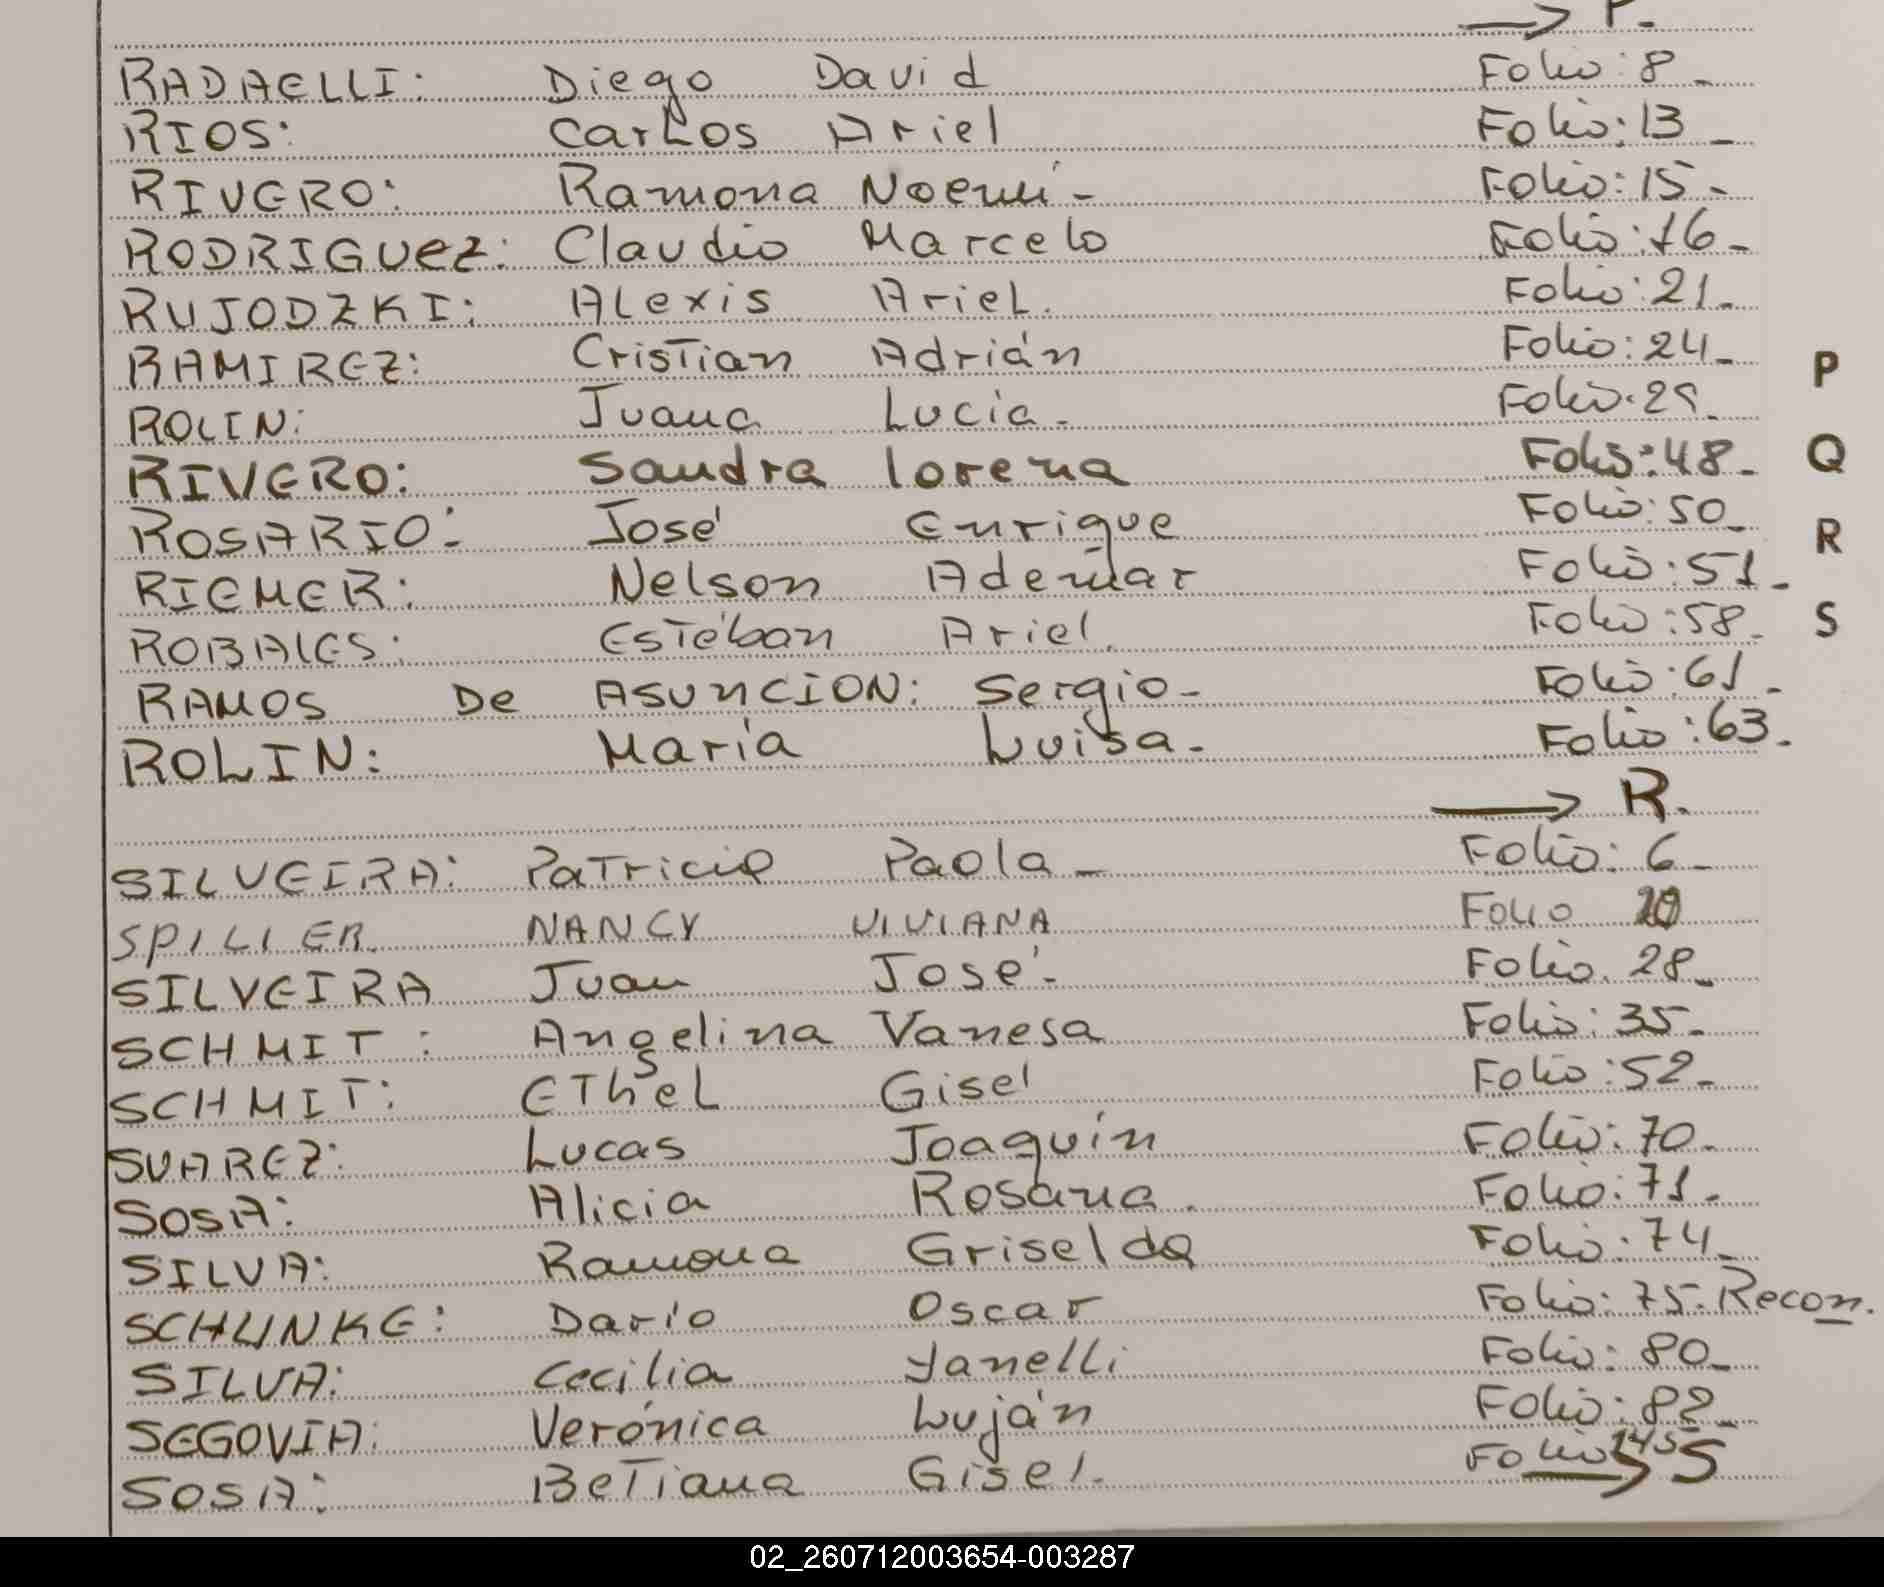 → P.
RADAELLI: Diego David Folio: 8_
RIOS: Carlos Ariel Folio: 13_
RIVERO: Ramona Noemí- Folio: 15-
RODRIGUez: Claudio Marcelo Folio: 16-
RUJODZKI: Alexis Ariel. Folio: 21-
RAMIREZ: Cristian Adrián Folio: 24-
ROLIN: Juana Lucia- Folio: 29-
RIVERO: Sandra lorena Folio: 48-
ROSARIO: José Enrique Folio: 50-
RIEMER: Nelson Ademar Folio: 51-
ROBALES: Estéban Ariel. Folio: 58-
RAMOS De ASUnCION: Sergio- Folio: 61-
ROLIN: María Luisa- Folio: 63-
→ R.
SILVEIRA: Patricia Paola- Folio: 6-
SPILIER NANCY VIVIANA Folio
SILVEIRA Juan José- Folio. 28-
SCHMIT: Angelina Vanesa Folio: 35-
SCHMIT: EThEL Gisel Folio: 52-
SUAREZ: Lucas Joaquín Folio: 70-
SOSA: Alicia Rosana. Folio: 71-
SILVA: Ramona Griselda Folio: 74-
SCHUNKE: Darío Oscar Folio: 75-Recon.
SILVA: Cecilia Yanelli Folio: 80-
SEGOVIA: Verónica Luján Folio: 82-
SOSA: BeTiana Gisel- Folio 145
→ S
P
Q
R
S
02_260712003654-003287